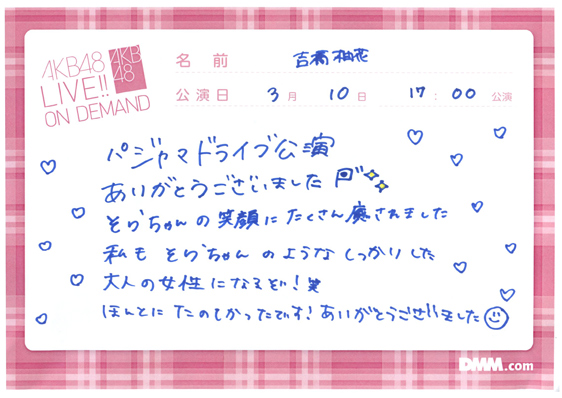 AKB48
LIVE!!
ON DEMAND
AKB
48
名前 吉橋柚花
公演日 3月 10日 17:00 公演
パジャマドライブ公演
ありがとうございました
そらちゃんの笑顔にたくさん癒されました
私もそらちゃんのようなしっかりした
大人の女性になるぞ!笑
ほんとにたのしかったです!ありがとうございました
DMM.com